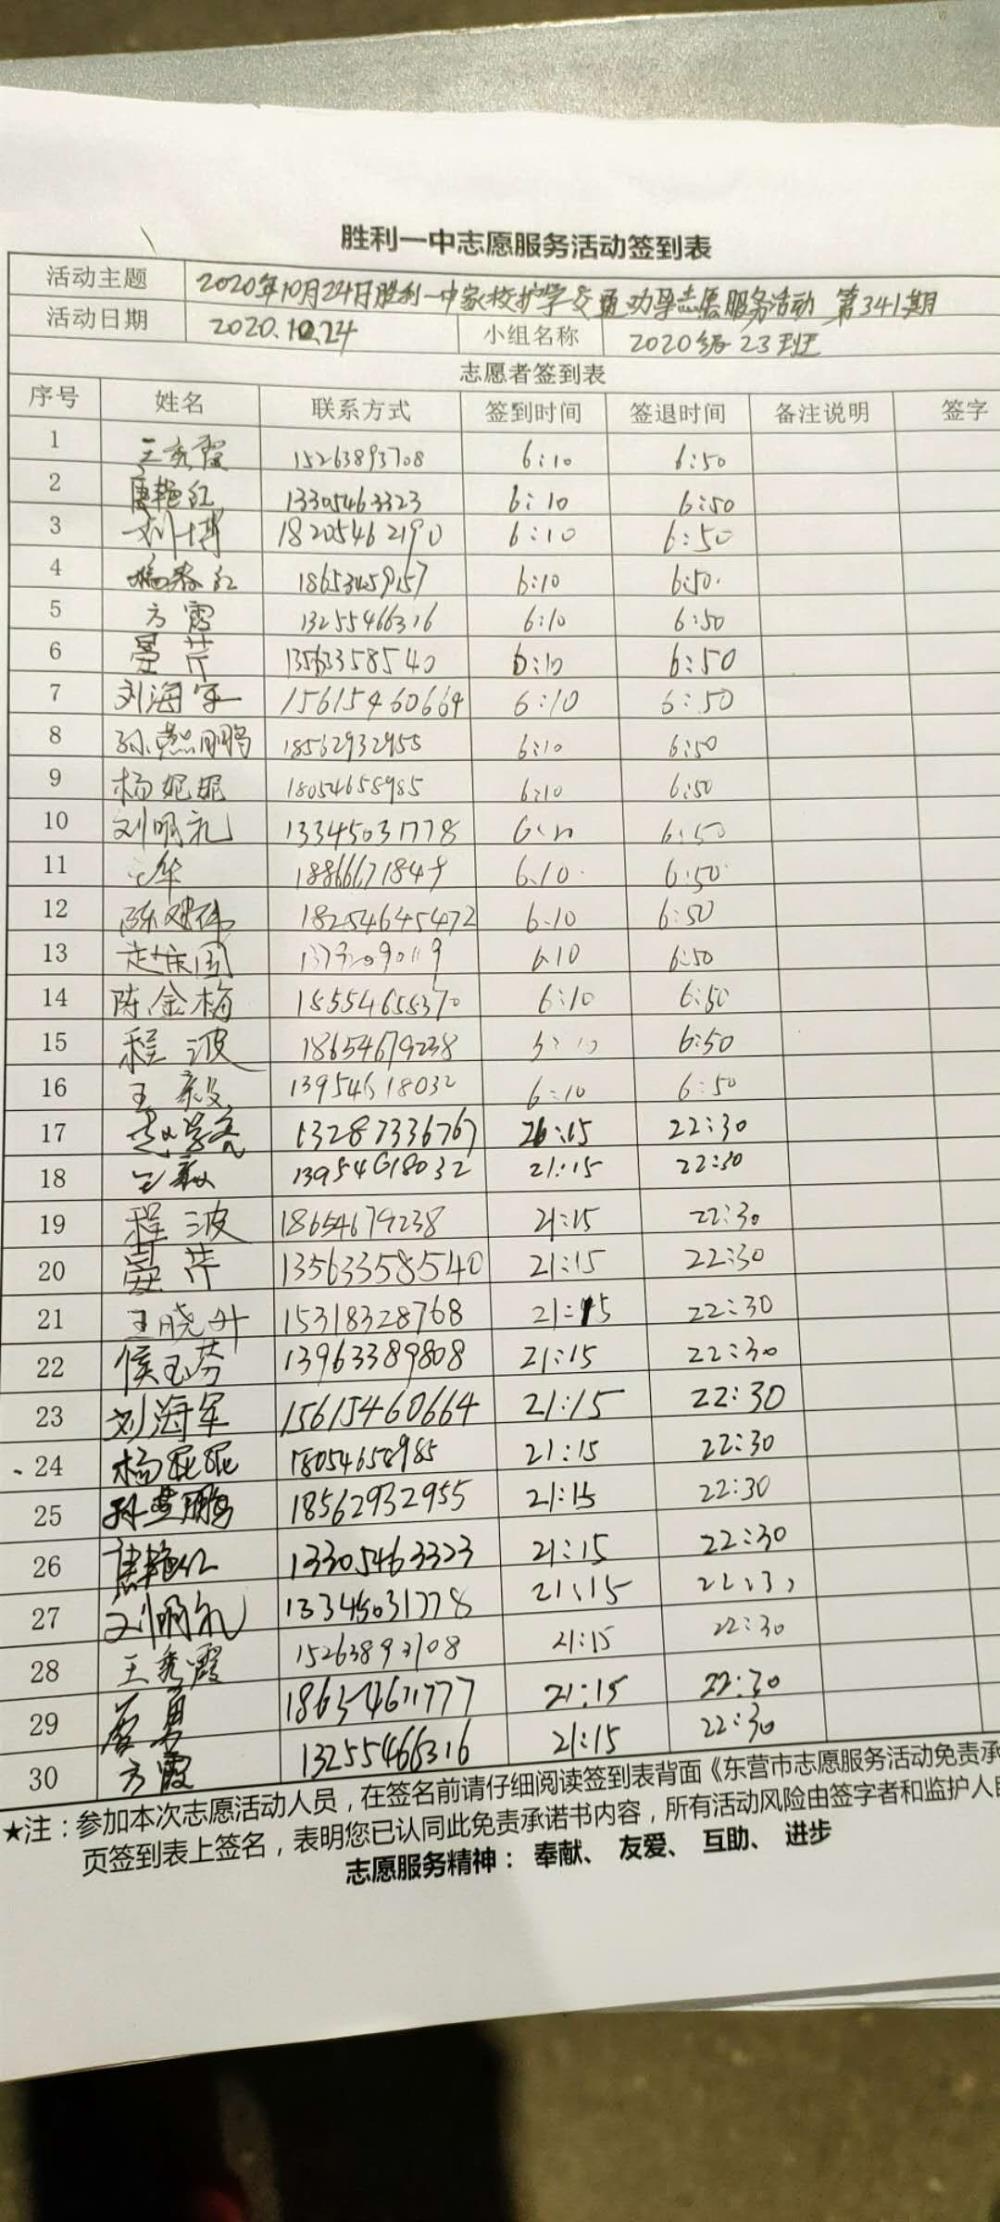 胜利一中志愿服务活动签到表
活动主题 2020年10月24日胜利一中家校护学交通劝导志愿服务活动 第341期
活动日期 2020.10.24 小组名称 2020级23班
志愿者签到表
序号 姓名 联系方式 签到时间 签退时间 备注说明 签字
1 王秀霞 15263893708 6:10 6:50
2 唐艳红 13305463323 6:10 6:50
3 刘博 18205462190 6:10 6:50
4 6:10 6:50
5 方霞 13255466316 6:10 6:50
6 晏芹 13563358540 6:10 6:50
7 刘海军 15615460664 6:10 6:50
8 孙燕鹏 18562932955 6:10 6:50
9 杨妮妮 18054658985 6:10 6:50
10 刘明礼 13345031778 6:10 6:50
11 6.10 6:50
12 18254645472 6:10 6:50
13 6.10 6:50
14 陈金梅 15554655370 6:10 6:50
15 程波 18654679238 6:50
16 王毅 13954618032 6:10 6:50
17 13287336767 22:30
18 王毅 13954618032 21:15 22:30
19 程波 18654679238 21:15 22:30
20 晏芹 13563358540 21:15 22:30
21 王晓丹 15318328768 21:15 22:30
22 侯玉芳 13963389808 21:15 22:30
23 刘海军 15615460664 21:15 22:30
24 杨妮妮 18054658985 21:15 22:30
25 孙燕鹏 18562932955 21:15 22:30
26 唐艳红 13305463323 21:15 22:30
27 刘明礼 13345031778 21:15
28 王秀霞 15263893708 21:15 22:30
29 21:15 22:30
30 方霞 13255466316 21:15 22:30
★注：参加本次志愿活动人员，在签名前请仔细阅读签到表背面《东营市志愿服务活动免责承
页签到表上签名，表明您已认同此免责承诺书内容，所有活动风险由签字者和监护人
志愿服务精神： 奉献、 友爱、 互助、 进步